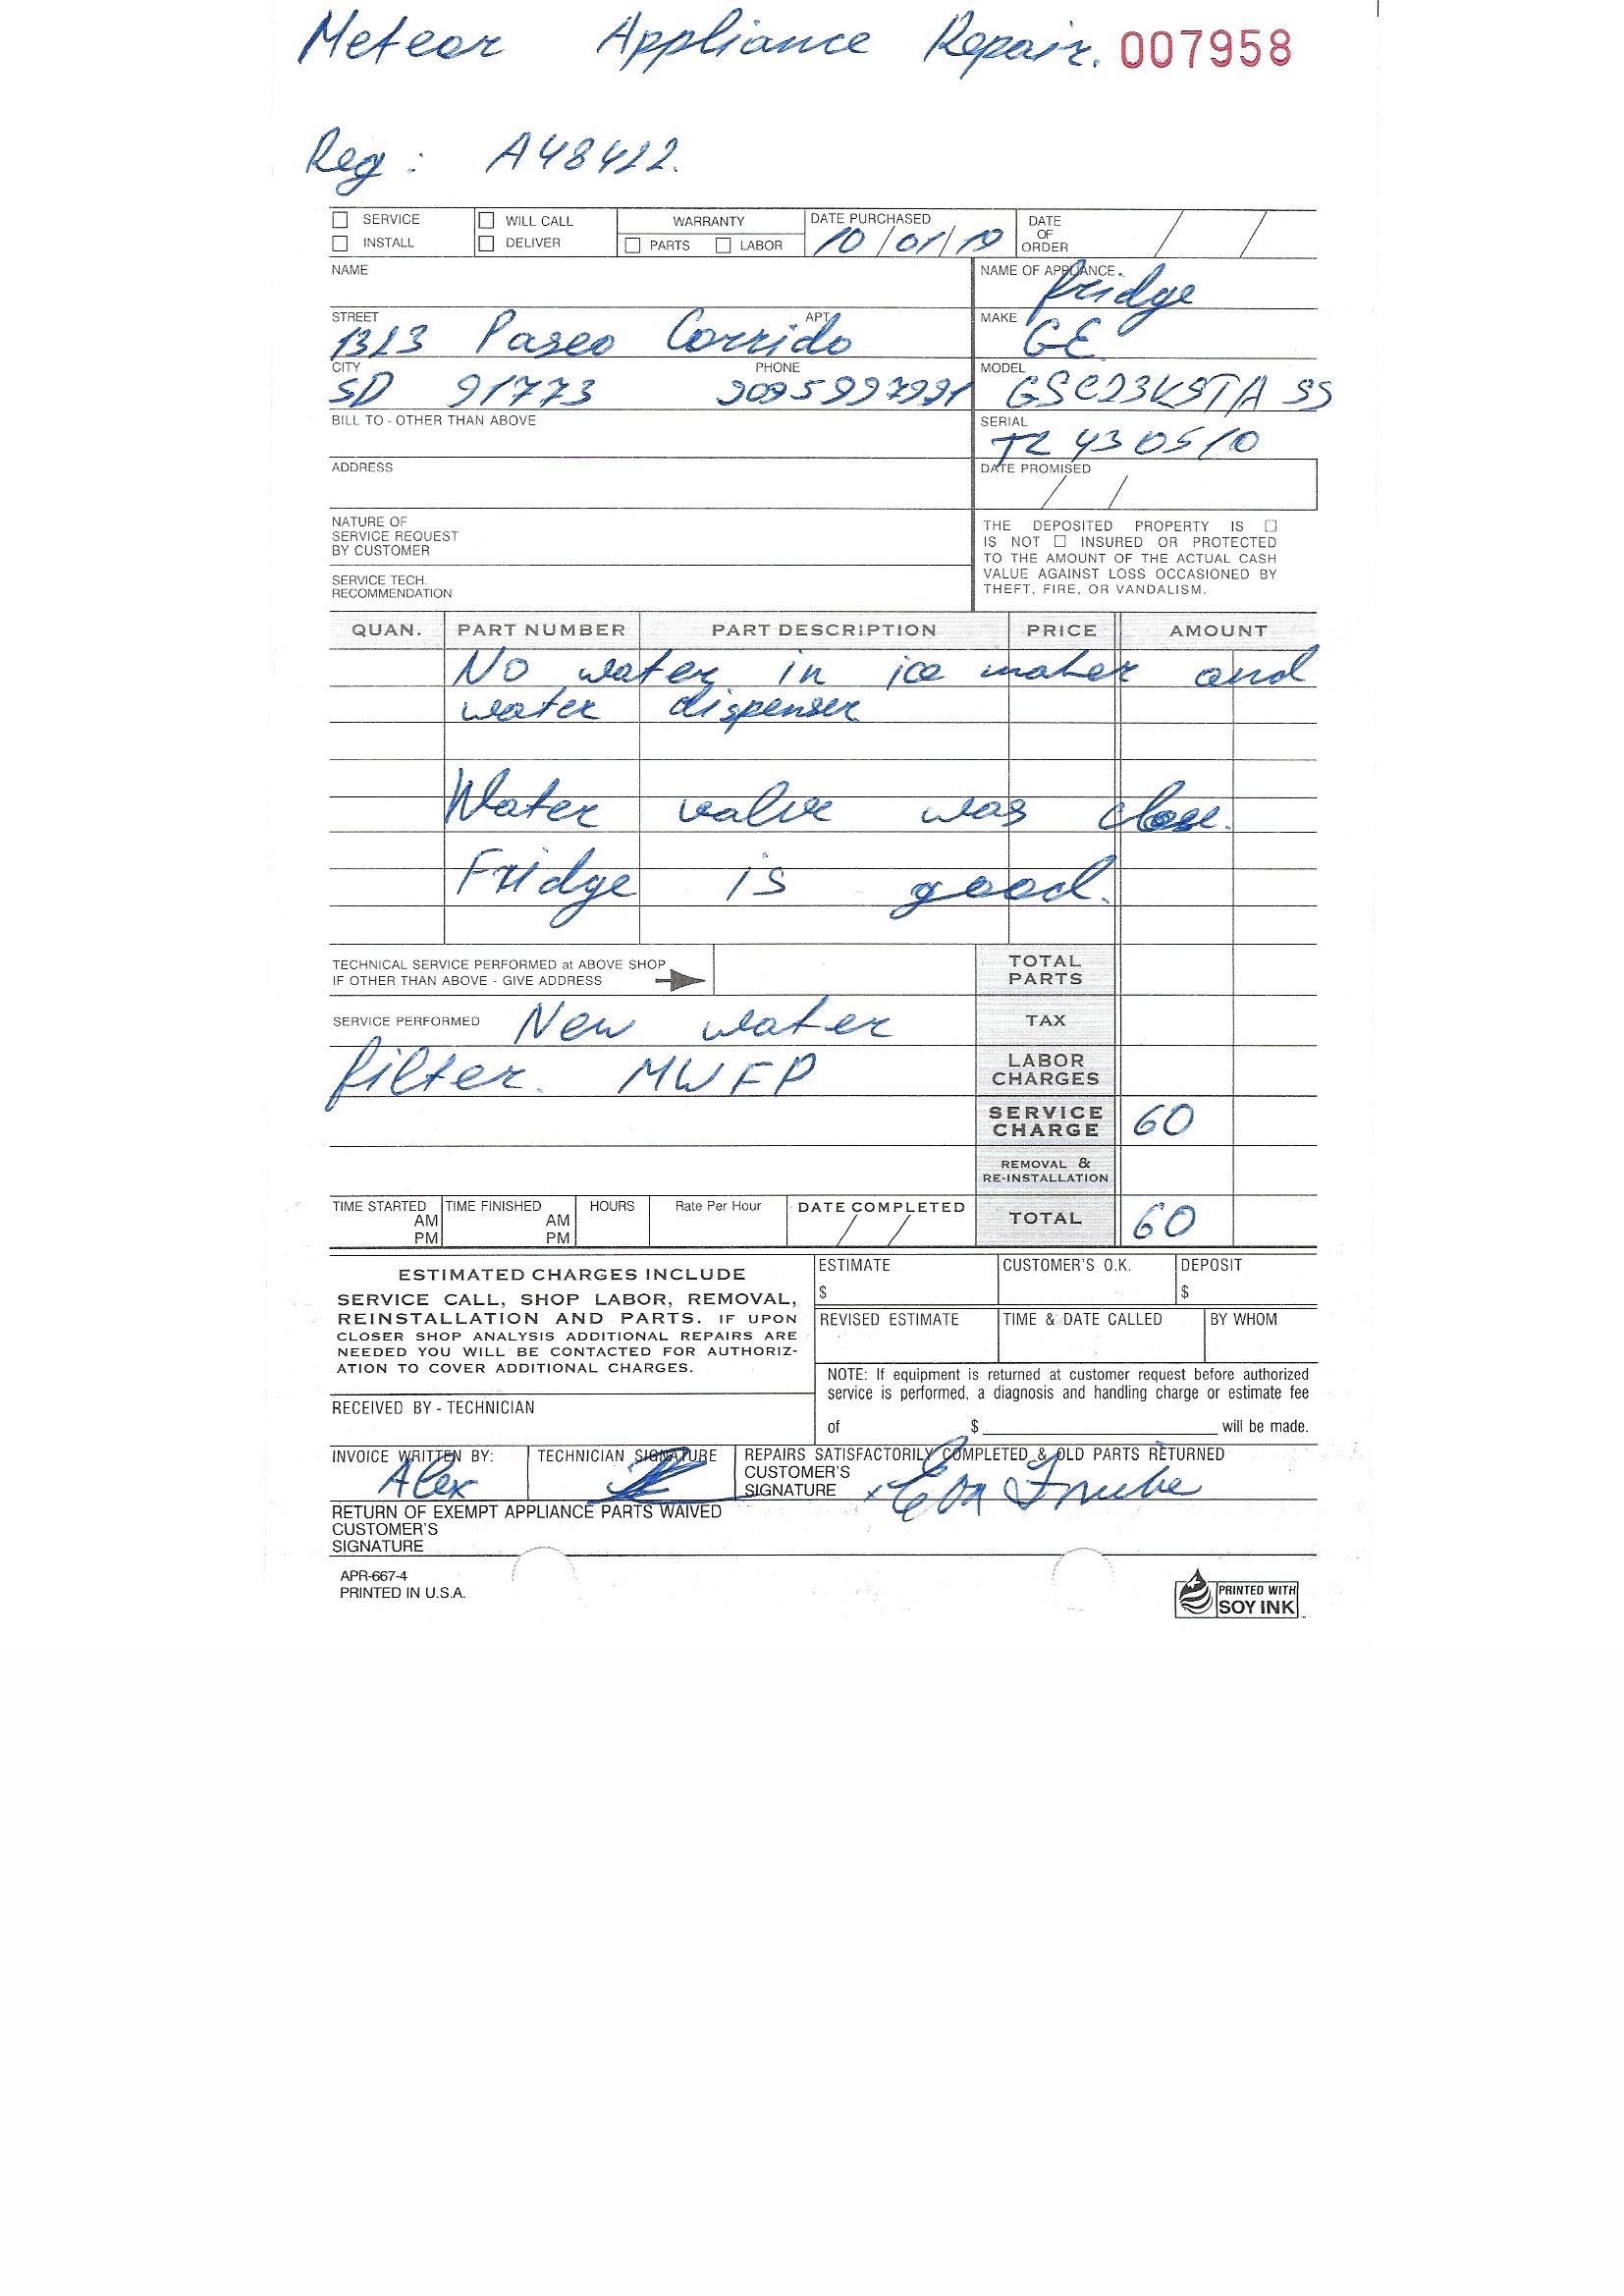 Meteor Appliance Repair. 007958
Reg: A48412.
SERVICE WILL CALL WARRANTY DATE PURCHASED DATE OF ORDER
INSTALL DELIVER PARTS LABOR 10/01/19
NAME NAME OF APPLIANCE. fridge
STREET APT. MAKE
1313 Paseo Corrido GE
CITY PHONE MODEL
SD 91773 9095997991 GSC23KSTA SS
BILL TO - OTHER THAN ABOVE SERIAL
TZ 430510
ADDRESS DATE PROMISED
NATURE OF
SERVICE REQUEST
BY CUSTOMER
SERVICE TECH.
RECOMMENDATION
THE DEPOSITED PROPERTY IS
IS NOT INSURED OR PROTECTED
TO THE AMOUNT OF THE ACTUAL CASH
VALUE AGAINST LOSS OCCASIONED BY
THEFT, FIRE, OR VANDALISM.
QUAN. PART NUMBER PART DESCRIPTION PRICE AMOUNT
No water in ice maker and
water dispenser
Water valve was close.
Fridge is good.
TECHNICAL SERVICE PERFORMED at ABOVE SHOP
IF OTHER THAN ABOVE - GIVE ADDRESS
TOTAL PARTS
SERVICE PERFORMED New water TAX
filter. MWFP LABOR CHARGES
SERVICE CHARGE 60
REMOVAL & RE-INSTALLATION
TIME STARTED AM PM TIME FINISHED AM PM HOURS Rate Per Hour DATE COMPLETED TOTAL 60
ESTIMATED CHARGES INCLUDE
SERVICE CALL, SHOP LABOR, REMOVAL,
REINSTALLATION AND PARTS. IF UPON
CLOSER SHOP ANALYSIS ADDITIONAL REPAIRS ARE
NEEDED YOU WILL BE CONTACTED FOR AUTHORIZ-
ATION TO COVER ADDITIONAL CHARGES.
ESTIMATE CUSTOMER'S O.K. DEPOSIT
$ $
REVISED ESTIMATE TIME & DATE CALLED BY WHOM
NOTE: If equipment is returned at customer request before authorized
service is performed, a diagnosis and handling charge or estimate fee
of $ will be made.
RECEIVED BY - TECHNICIAN
INVOICE WRITTEN BY: TECHNICIAN SIGNATURE REPAIRS SATISFACTORILY COMPLETED & OLD PARTS RETURNED
Alex CUSTOMER'S
SIGNATURE x
RETURN OF EXEMPT APPLIANCE PARTS WAIVED
CUSTOMER'S
SIGNATURE
APR-667-4
PRINTED IN U.S.A.
PRINTED WITH
SOY INK